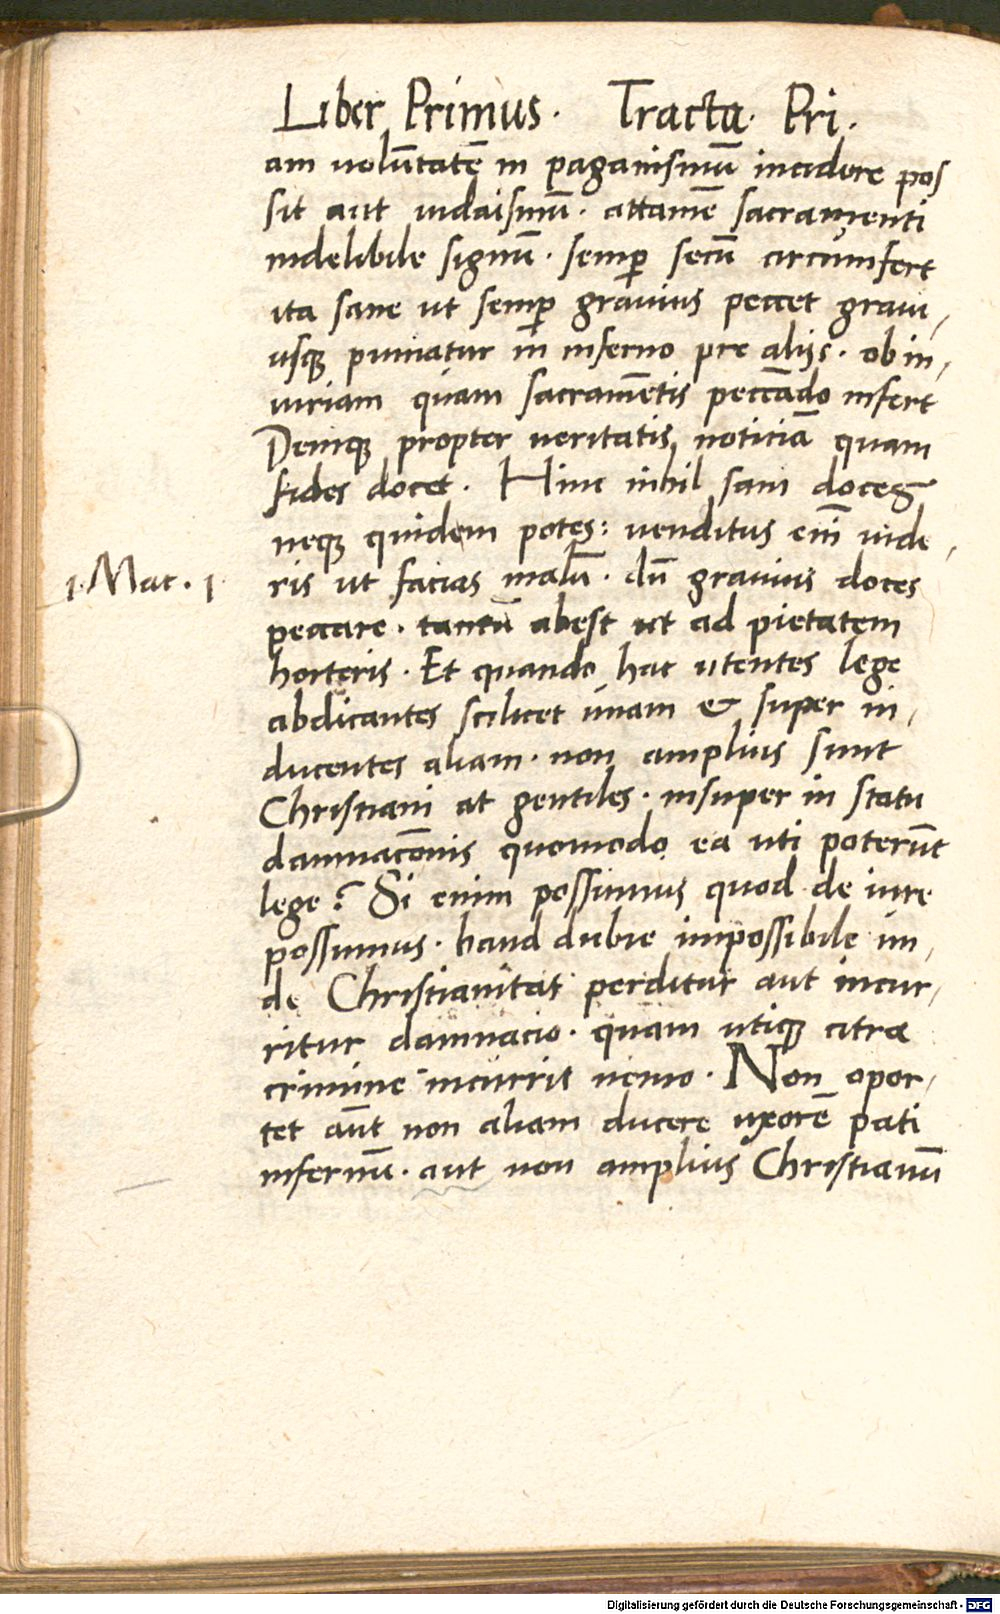 Liber Primus · Tracta · Pri ·
am volūtatē in paganismū incidere pos
sit aut iudaismū · attamē sacramenti
indelibile signū · semꝑ secū circumfert
ita sane ut semꝑ grauius peccet graui,
usqꝫ puniatur in inferno pre alijs · ob in,
iuriam quam sacramētis peccādo infert
Deniqꝫ propter veritatis noticiā quam
fides docet · Hinc nihil sani doces
neqꝫ quidem potes: venditus eni vide,
1 · Mac · 1 ·
ris ut facias malū · dū grauius doces
peccare · tantū abest ut ad pietatem
horteris · Et quando hac utentes lege
abdicantes scilicet unam & super in,
ducentes aliam · non amplius sunt
Christiani at gentiles · insuper in statu
damnacōnis quomodo ea uti poterūt
lege? Si enim possumus quod de iure
possumus · haud dubie impossibile un,
de Christianitas perditur aut incur,
ritur damnacio · quam utiqꝫ citra
crimine incurrit nemo · Non opor,
tet aūt non aliam ducere uxorē pati
infernū · aut non amplius Christianū
Digitalisierung gefördert durch die Deutsche Forschungsgemeinschaft - DFG